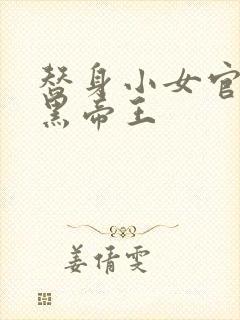 替身小女官
黑帝王
姜倩雯